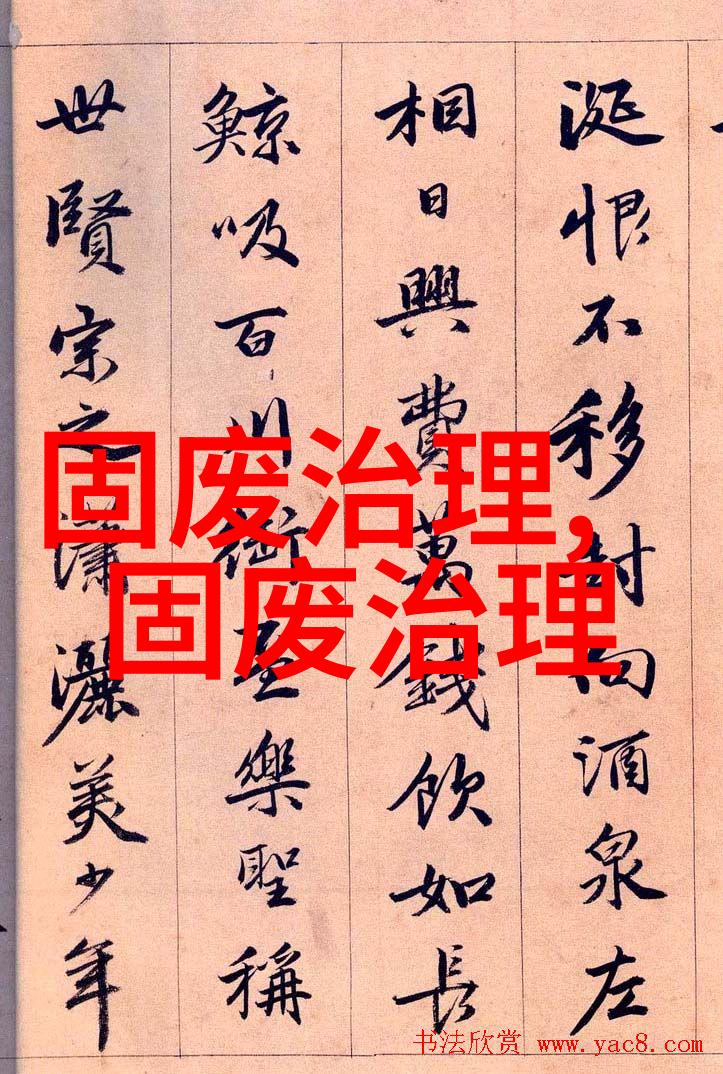 涎恨不移封向酒泉左
相日興費萬錢飲如長
鯨吸百川銜盃樂聖稱
世賢宗之瀟灑美少年
固废治理,
固废治理
书法欣赏 www.yac8.com